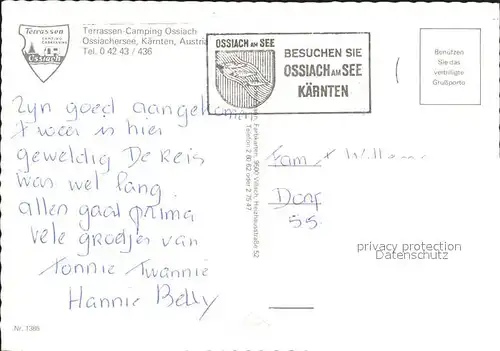 Terrassen
CAMPING
Ossiach
Terrassen-Camping Ossiach
Ossiachersee, Kärnten, Austria
Tel. 0 42 43 / 436
OSSIACH AM SEE
BESUCHEN SIE
OSSIACH AM SEE
KÄRNTEN
Benützen
Sie das
verbilligte
Grußporto
Zyn goed aangekomen
t weer is hier
geweldig De Reis
was wel lang
allen gaat prima
vele groetjes van
Tonnie Twannie
Hannie Betty
Farbkarten, 9500 Villach, Heizhausstraße 52
Telefon 2 80 62 oder 2 75 47
Fam
Dorf
55
privacy protection
Datenschutz
Nr. 1386